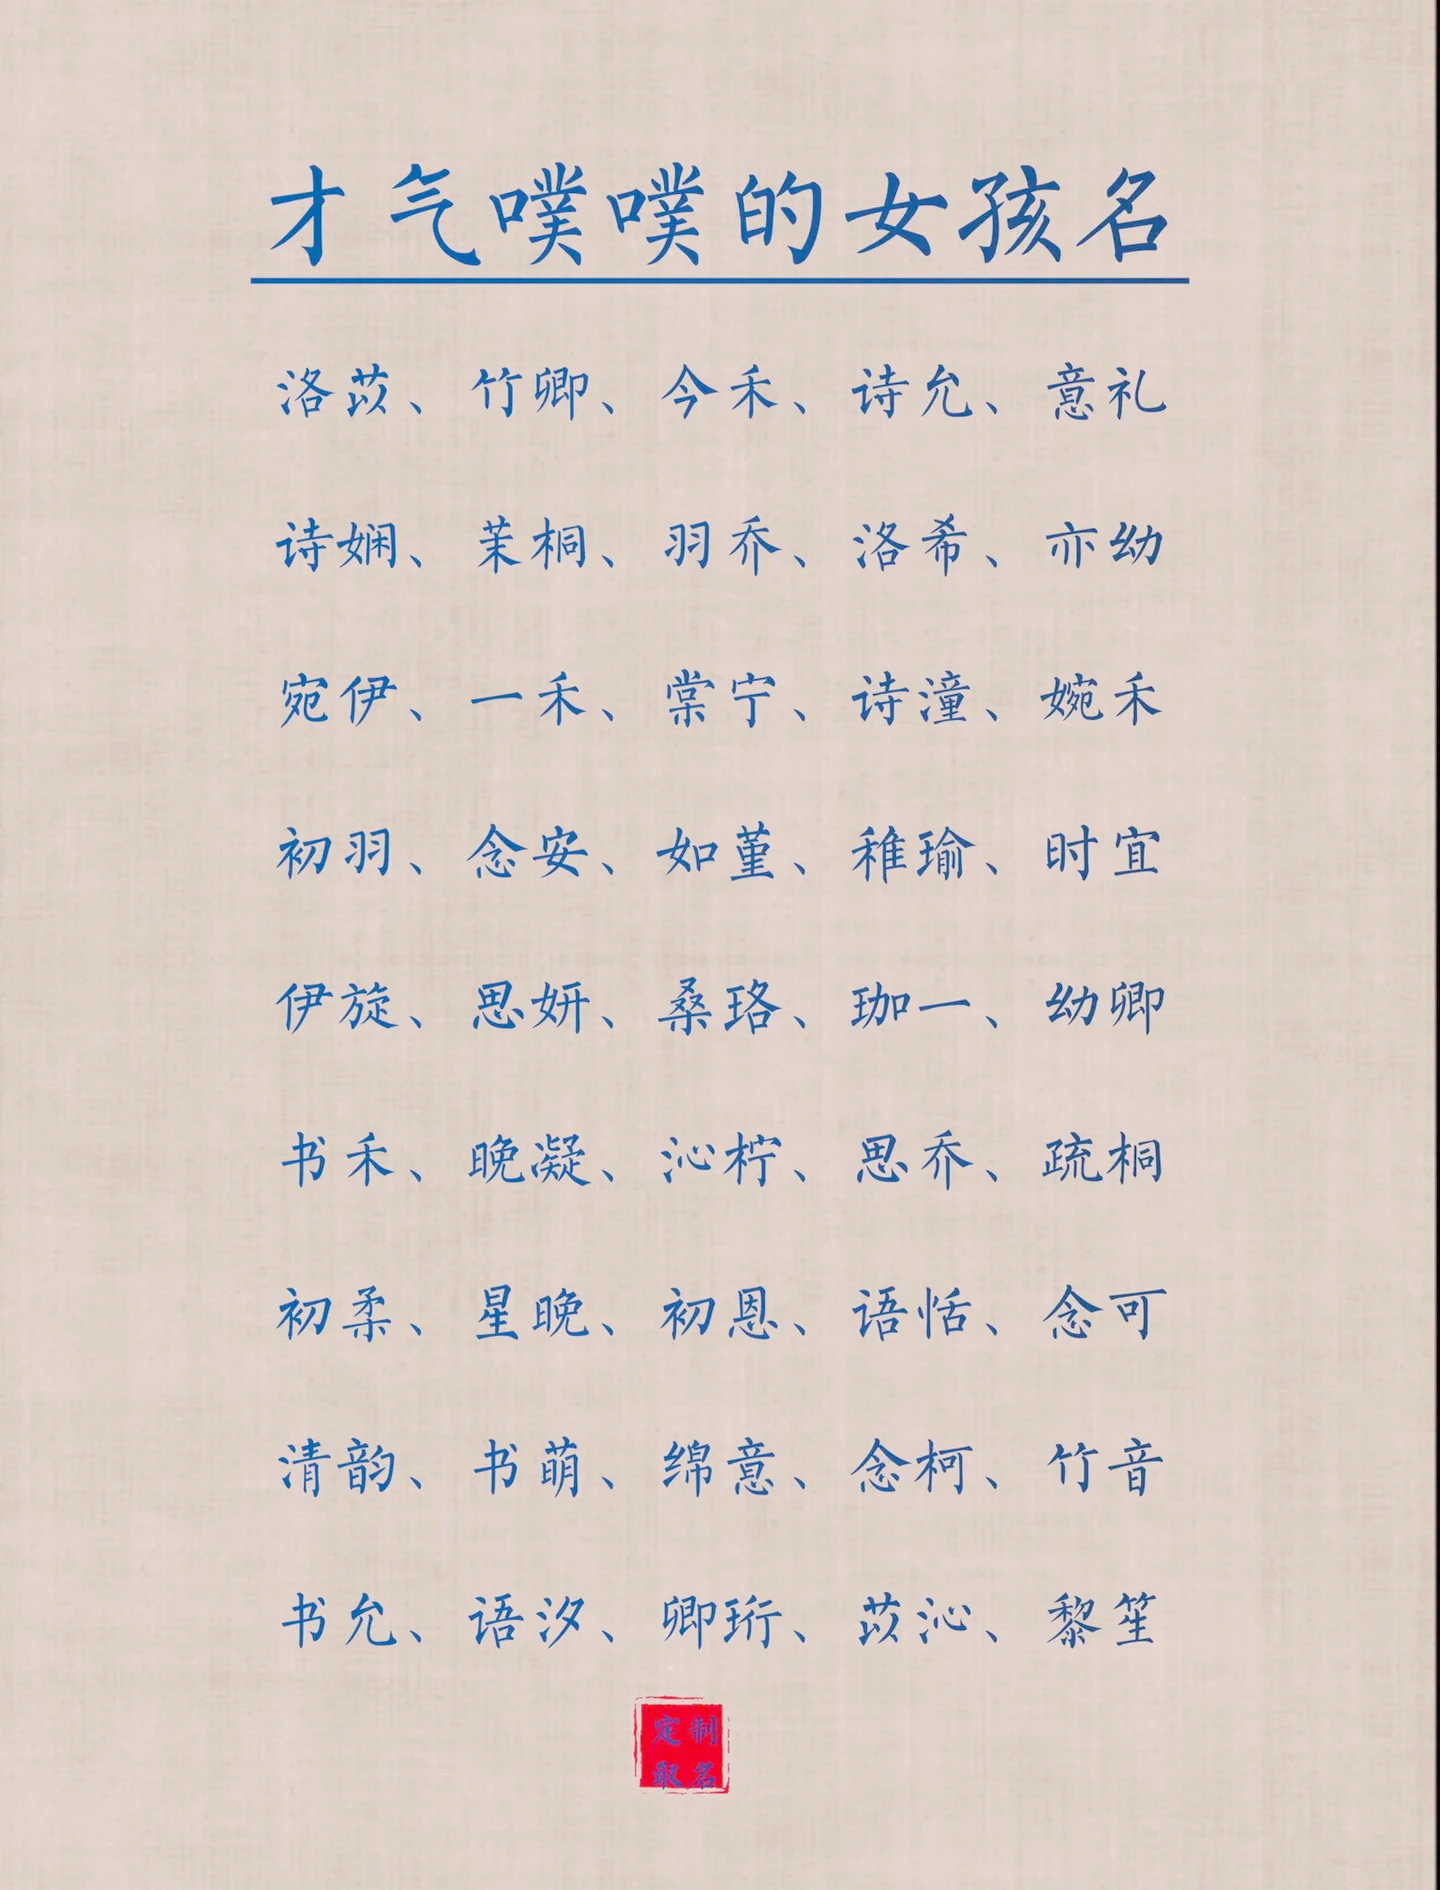 才气噗噗的女孩名
洛苡、竹卿、今禾、诗允、意礼
诗娴、茉桐、羽乔、洛希、亦幼
宛伊、一禾、棠宁、诗潼、婉禾
初羽、念安、如堇、稚瑜、时宜
伊旋、思妍、桑珞、珈一、幼卿
书禾、晚凝、沁柠、思乔、疏桐
初柔、星晚、初恩、语恬、念可
清韵、书萌、绵意、念柯、竹音
书允、语汐、卿珩、苡沁、黎笙
定制
取名